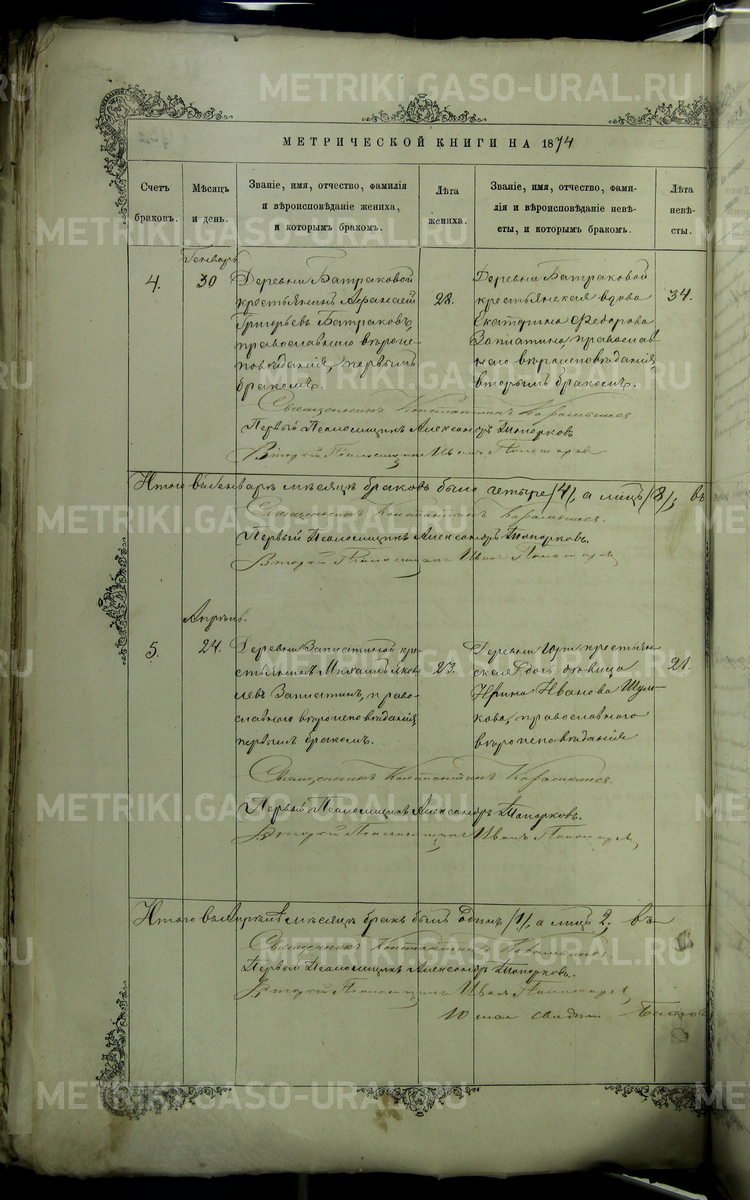 METRIKI.GASO-URAL.RU
МЕТРИЧЕСКОЙ КНИГИ НА 1874
Счетъ браковъ.
Мѣсяцъ и день.
Званіе, имя, отчество, фамилія
и вѣроисповѣданіе жениха,
и которымъ бракомъ.
Лѣта жениха.
Званіе, имя, отчество, фами-
лія и вѣроисповѣданіе невѣ-
сты, и которымъ бракомъ.
Лѣта невѣ-
сты.
Генварь
4.
30
Деревни Батраковой
крестьянинъ Афанасей
Григорьевъ Батраковъ,
православнаго вѣроис-
повѣданія, первымъ
бракомъ.
28.
Деревни Батраковой
крестьянская вдова
Екатерина Федорова
Запятина православ-
наго вѣроисповѣданія,
вторымъ бракомъ.
34.
Священникъ Константинъ
Первый Псаломщикъ Александръ Топорковъ
Второй Псаломщикъ Иванъ
Итого въ Генварѣ мѣсяцѣ браковъ было четыре /4/, а лицъ /8/, въ
Священникъ Константинъ
Первый Псаломщикъ Александръ Топорковъ.
Второй Псаломщикъ Иванъ
Апрѣль.
5.
24.
Деревни Запятиной кре-
стьянинъ Михаилъ Яков-
левъ Запятинъ, право-
славнаго вѣроисповѣданія
первымъ бракомъ.
23.
Деревни крестьян-
ская дочь дѣвица
Ирина Иванова Шум-
кова, православнаго
вѣроисповѣданія
21.
Священникъ Константинъ
Первый Псаломщикъ Александръ Топорковъ.
Второй Псаломщикъ Иванъ
Итого въ Апрѣлѣ мѣсяцѣ бракъ былъ одинъ /1/, а лицъ 2, въ
Священникъ Константинъ
Первый Псаломщикъ Александръ Топорковъ.
Второй Псаломщикъ Иванъ
10 мая